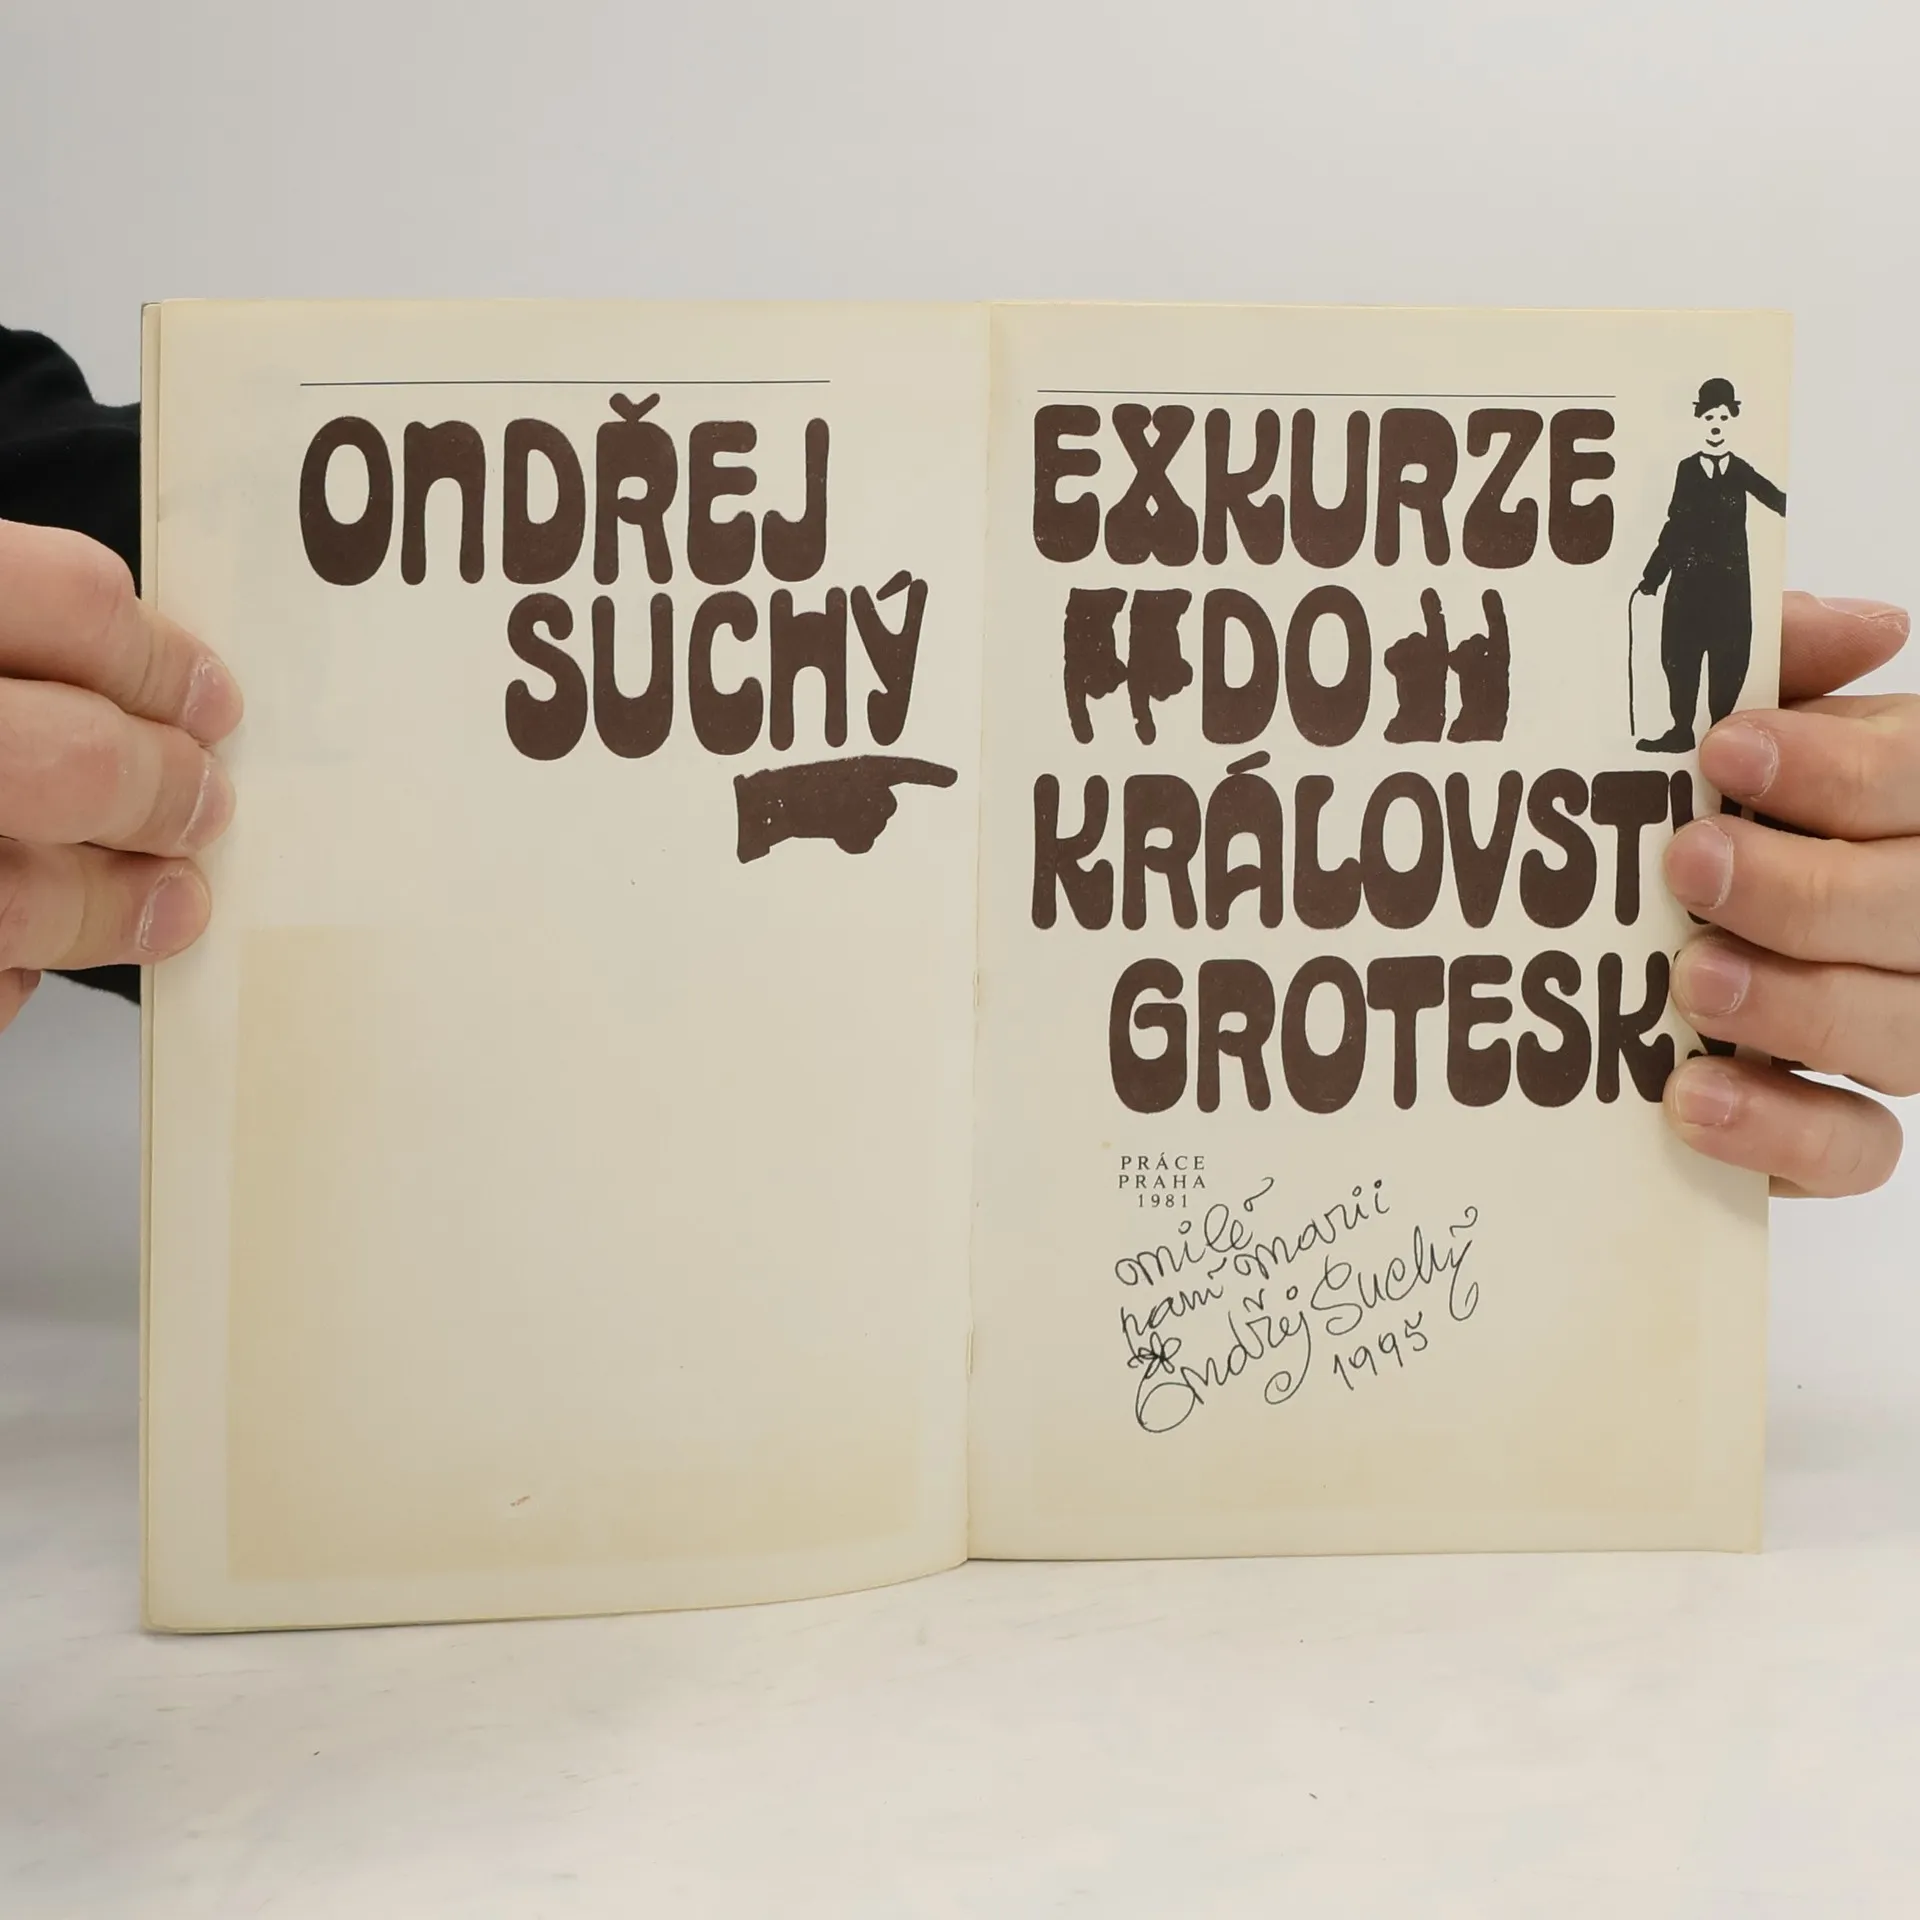 ONDŘEJ
SUCHÝ
EXKURZE
DO
KRÁLOVSTV
GROTESK
PRÁCE
PRAHA
1981
milé
paní marii
Ondřej Suchý
1995